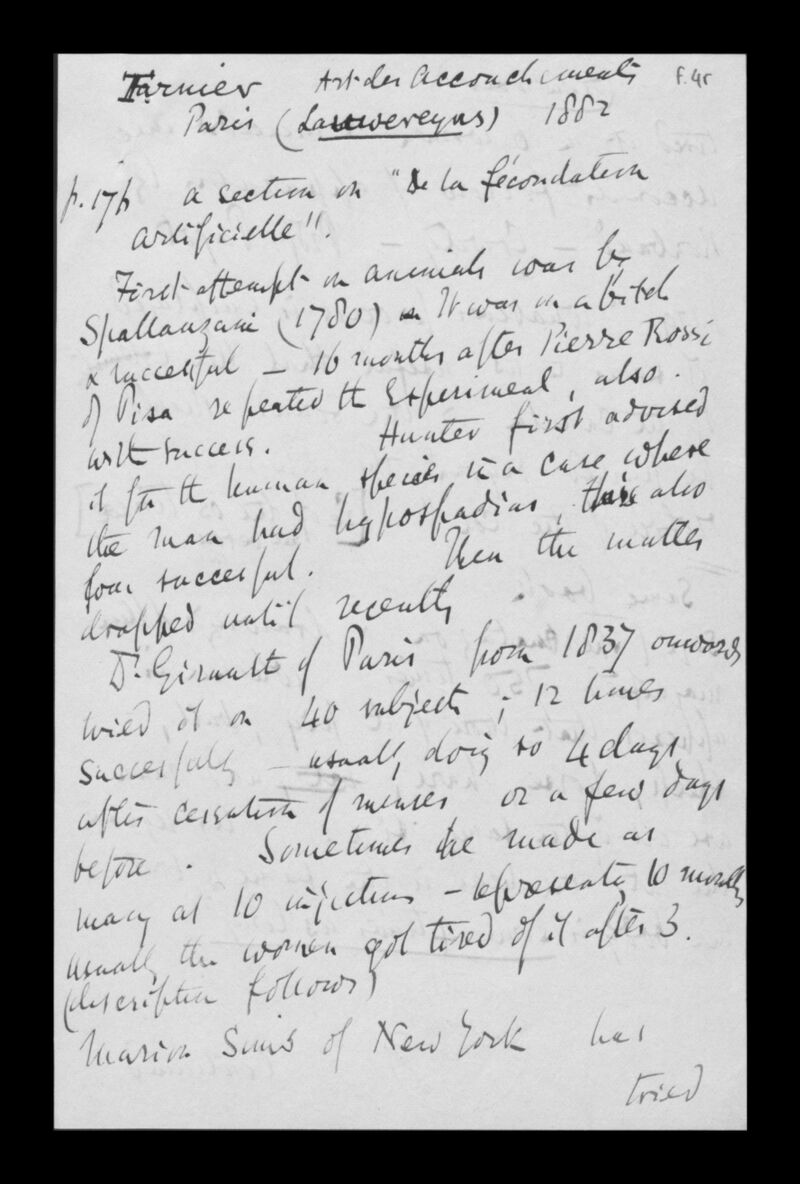 Tarnier Art des Accouchements f.4r
Paris (Lauwereyns) 1882
p. 176 a section on "De la fécondation
artificielle".
First attempt on animals was by
Spallanzani (1780) It was on a bitch
& succesful – 16 months after Pierre Rossi
of Pisa repeated th Experiment, also
with success. Hunter first advised
it for th human species in a case where
the man had hypospadias, this also
four succesful. Then the matter
dropped until recently
Dr. Girault of Paris from 1837 onwards
tried it on 40 subjects; 12 times
successfully – usually doing so 4 days
after cessation of menses or a few days
before. Sometimes he made as
many as 10 injections – representing 10 months
usually the women got tired of it after 3.
(description follows)
Marion Sims of New York has
tried